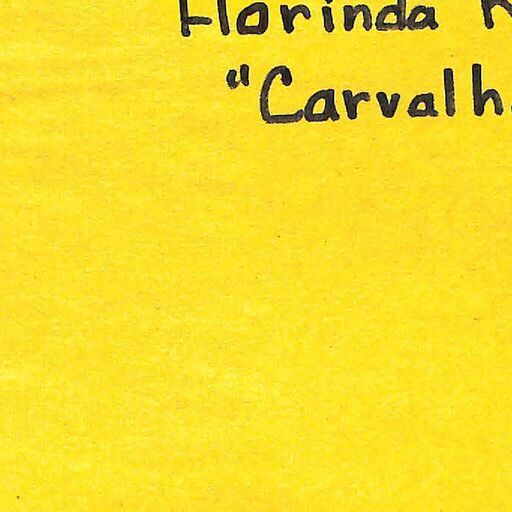 Florinda
"Carvalh